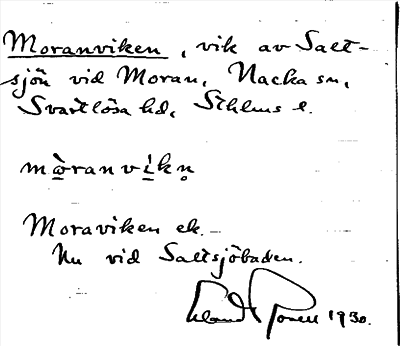 Moranviken, vik av Salt-
sjön vid Moran, Nacka sn,
Svartlösa hd, Sthlms l.
mòranvíkn̥
Moraviken ek.
Nu vid Saltsjöbaden.
1930.